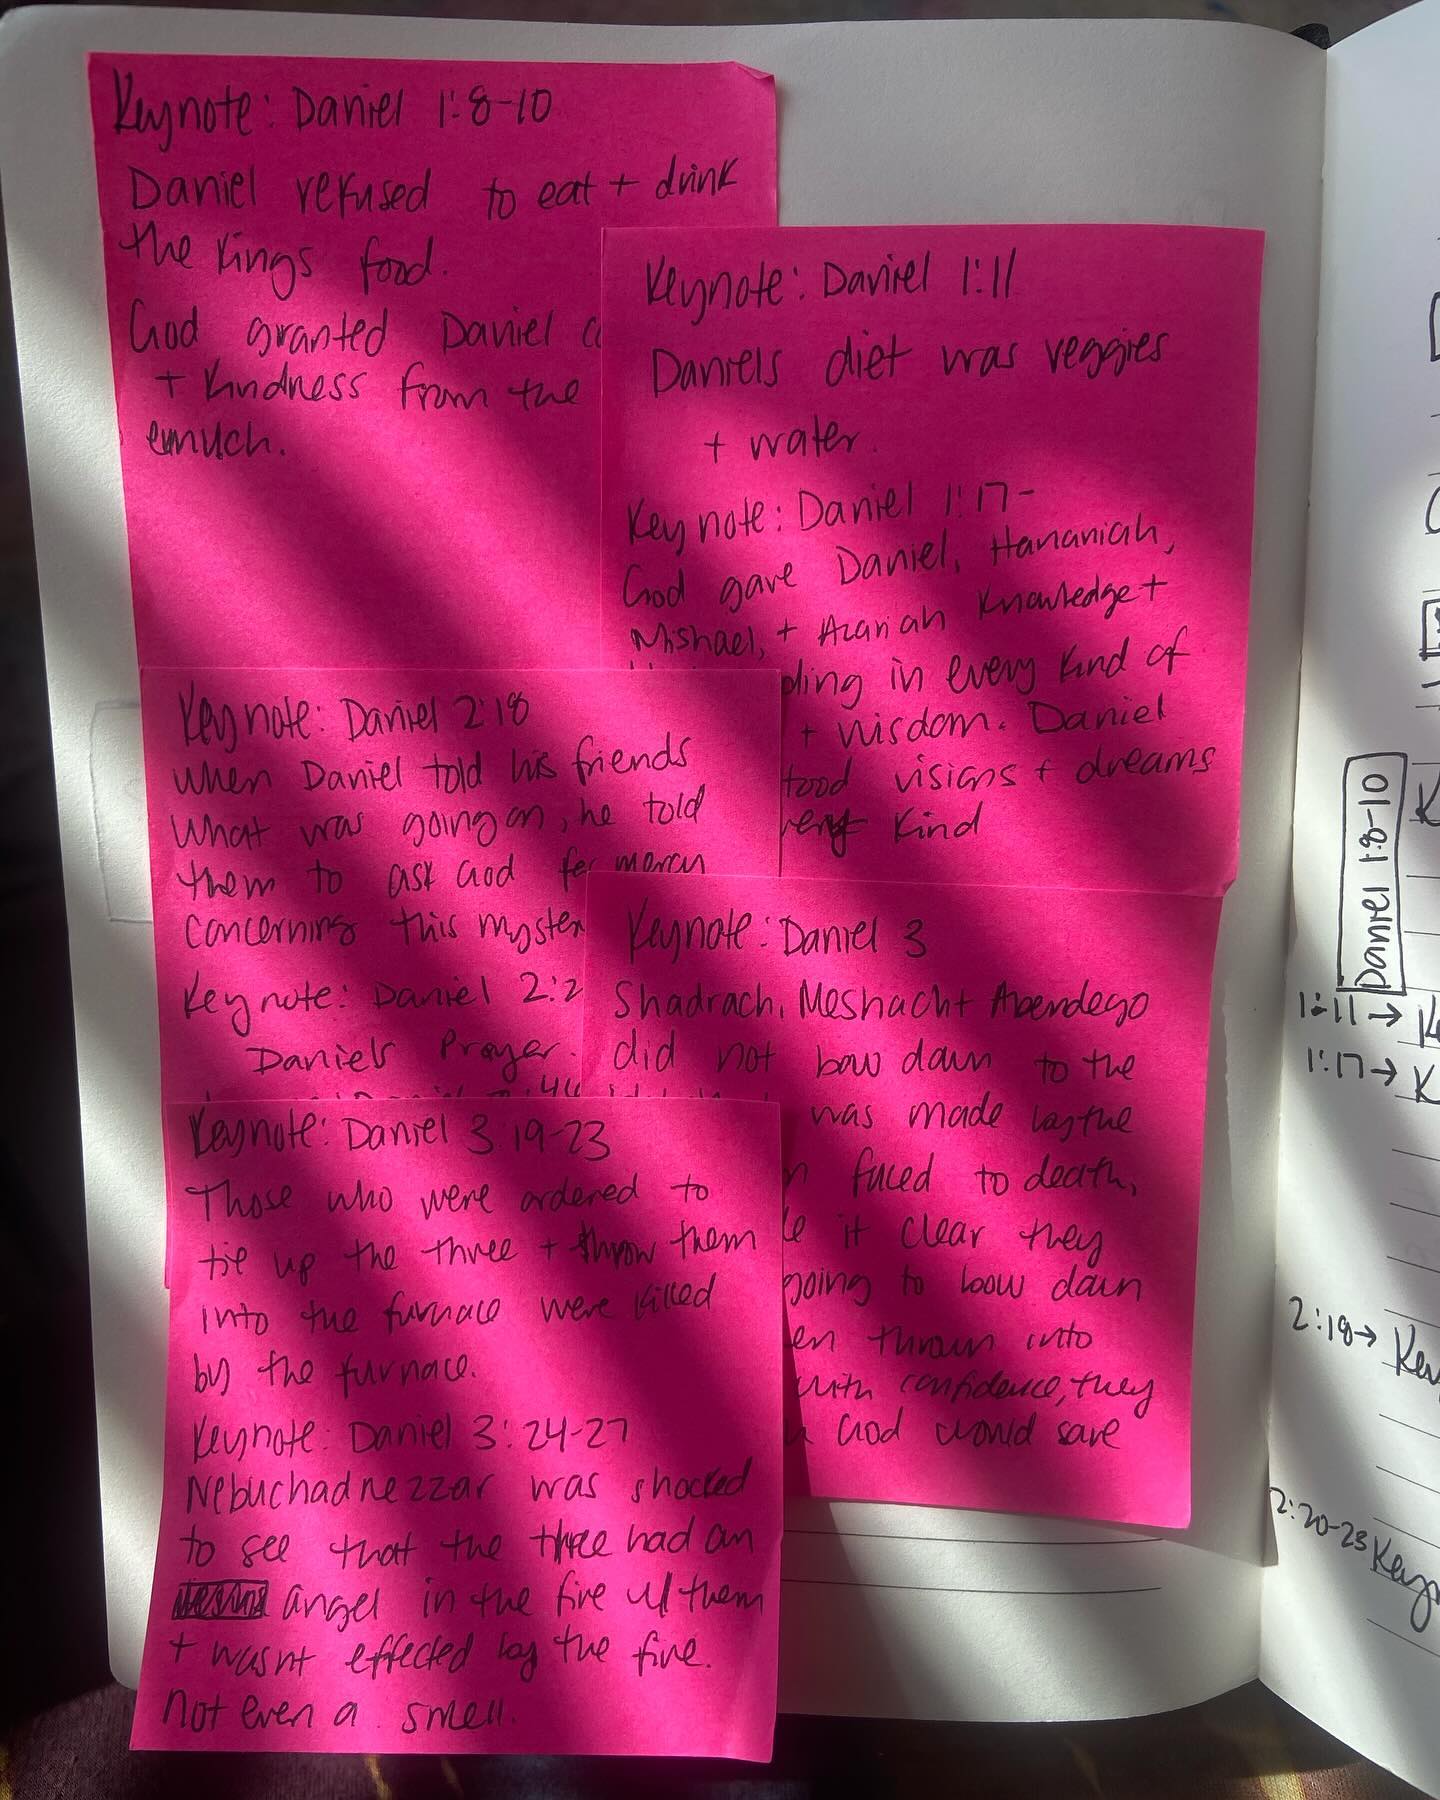 Keynote: Daniel 1:8-10
Daniel refused to eat + drink
the Kings food.
God granted Daniel
+ kindness from the
enuch.
Keynote: Daniel 1:11
Daniels diet was veggies
+ water.
Keynote: Daniel 1:17-
God gave Daniel, Hananiah,
Mishael, + Azariah Knowledge +
ding in every kind of
+ wisdom. Daniel
tood visions + dreams
kind
Keynote: Daniel 2:18
when Daniel told his friends
what was going on, he told
them to ask God for mercy
concerning this myster
Keynote: Daniel 2:2
Daniels Prayer.
Keynote: Daniel 3
Shadrach, Meshach + Abendego
did not bow down to the
was made by the
n faced to death,
it clear they
going to bow down
en thrown into
with confidence, they
God would save
Keynote: Daniel 3 19-23
Those who were ordered to
tie up the three + throw them
into the furnace were killed
by the furnace.
Keynote: Daniel 3:24-27
Nebuchadnezzar was shocked
to see that the three had an
angel in the fire w/ them
+ wasnt effected by the fire.
not even a smell.
Daniel 1:8-10
1:11 → Ke
1:17 → K
2:18 → Key
2:20-23 Keyn